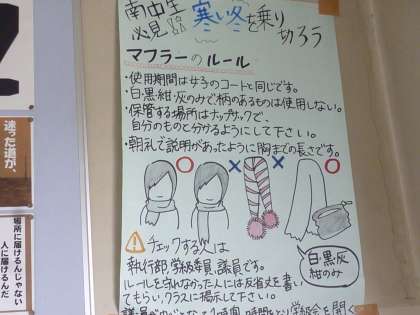 南中生
必見!!
寒い冬を乗り
切ろう
マフラーのルール
・使用期間は女子のコートと同じです。
・白・黒・紺・灰のみで柄のあるものは使用しない。
・保管する場所はナップサックで、
自分のものと分けるようにして下さい。
・朝礼で説明があったように胸までの長さです。
○
○
×
×
○
白・黒・灰
紺のみ
チェックする人は
執行部、学級委員、議員です。
ルールを守れなかった人には反省文を書い
てもらい、クラスに掲示して下さい。
違った道が、
場所に届けるんじゃない
人に届けるんだ